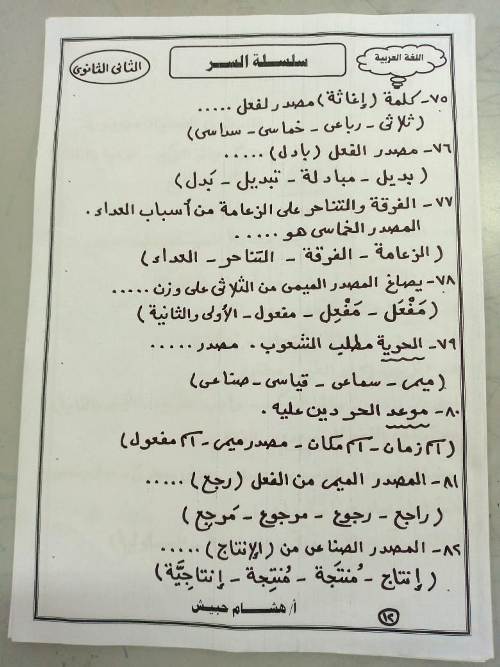 اللغة العربية
سلسلة السر
الثانى الثانوى
٧٥- كلمة (إغاثة) مصدر لفعل .....
(ثلاثى - رباعى - خماسى - سداسى)
٧٦- مصدر الفعل (بادل) .....
(بديل - مبادلة - تبديل - بَدل)
٧٧- الفرقة والتناحر على الزعامة من أسباب العداء.
المصدر الخماسى هو .....
(الزعامة - الفرقة - التناحر - العداء)
٧٨- يصاغ المصدر الميمى من الثلاثى على وزن .....
(مَفْعَل - مَفْعِل - مفعول - الأولى والثانية)
٧٩- الحرية مطلب الشعوب. مصدر .....
(ميمى - سماعى - قياسى - صناعى)
٨٠- موعد الحر دين عليه.
(اسم زمان - اسم مكان - مصدر ميمى - اسم مفعول)
٨١- المصدر الميمى من الفعل (رجع) .....
(راجع - رجوع - مرجوع - مَرجِع)
٨٢- المصدر الصناعى من (الإنتاج) .....
(إنتاج - مُنتَجة - مُنتِجة - إنتاجيَّة)
أ/ هشام حبيش
١٢